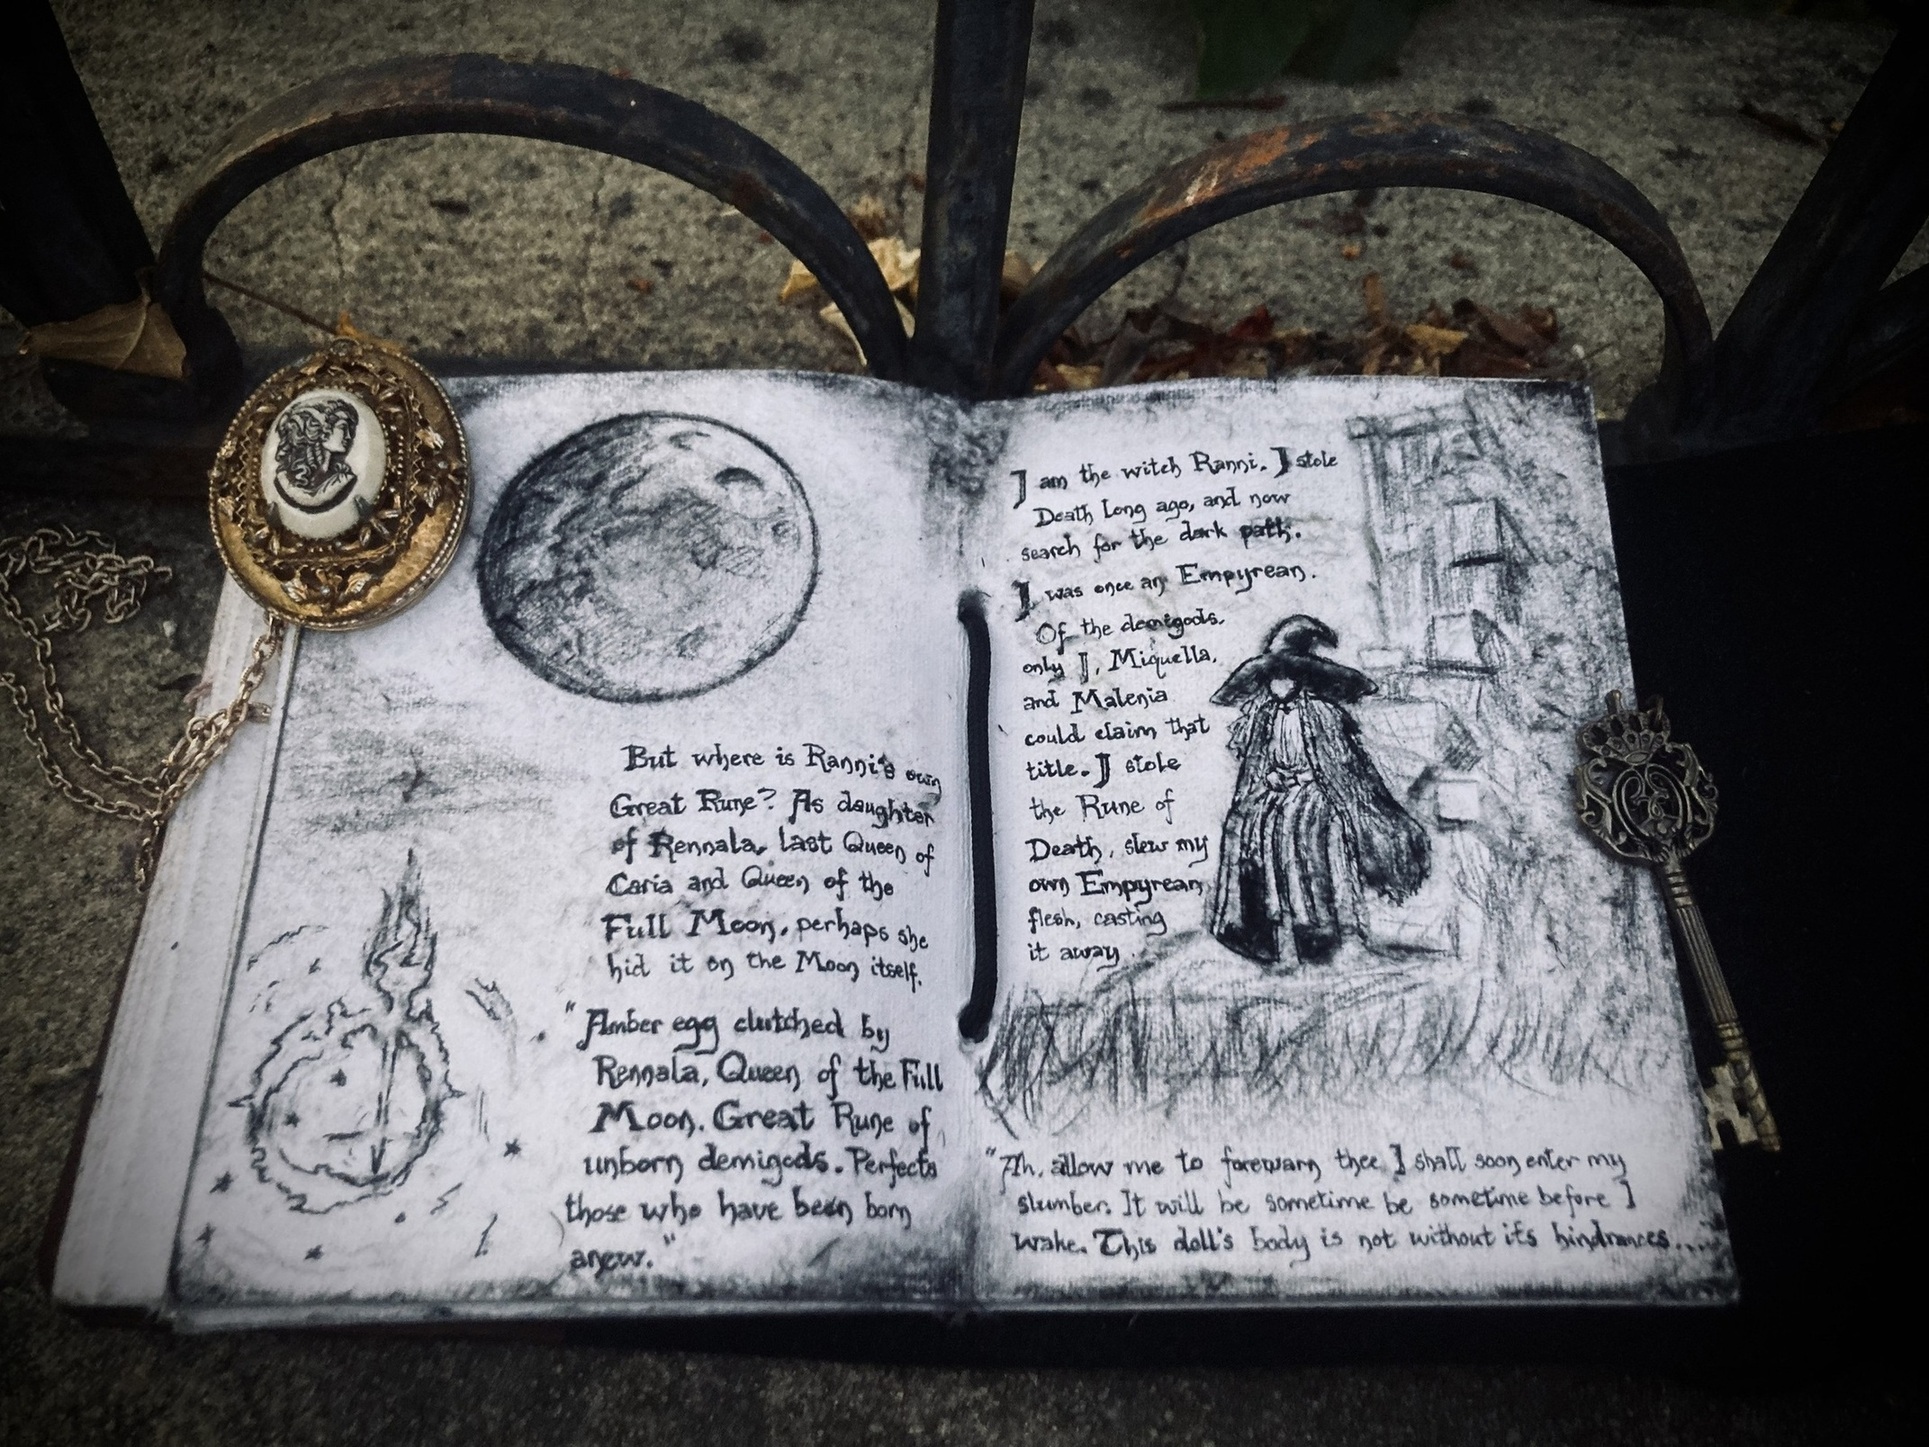 But where is Ranni's own
Great Rune? As daughter
of Rennala, last Queen of
Caria and Queen of the
Full Moon, perhaps she
hid it on the Moon itself.
"Amber egg clutched by
Rennala, Queen of the Full
Moon. Great Rune of
unborn demigods. Perfects
those who have been born
anew."
I am the witch Ranni. I stole
Death long ago, and now
search for the dark path.
I was once an Empyrean.
Of the demigods,
only I, Miquella,
and Malenia
could claim that
title. I stole
the Rune of
Death, slew my
own Empyrean
flesh, casting
it away.
"Ah, allow me to forewarn thee. I shall soon enter my
slumber. It will be sometime be sometime before I
wake. This doll's body is not without its hindrances...